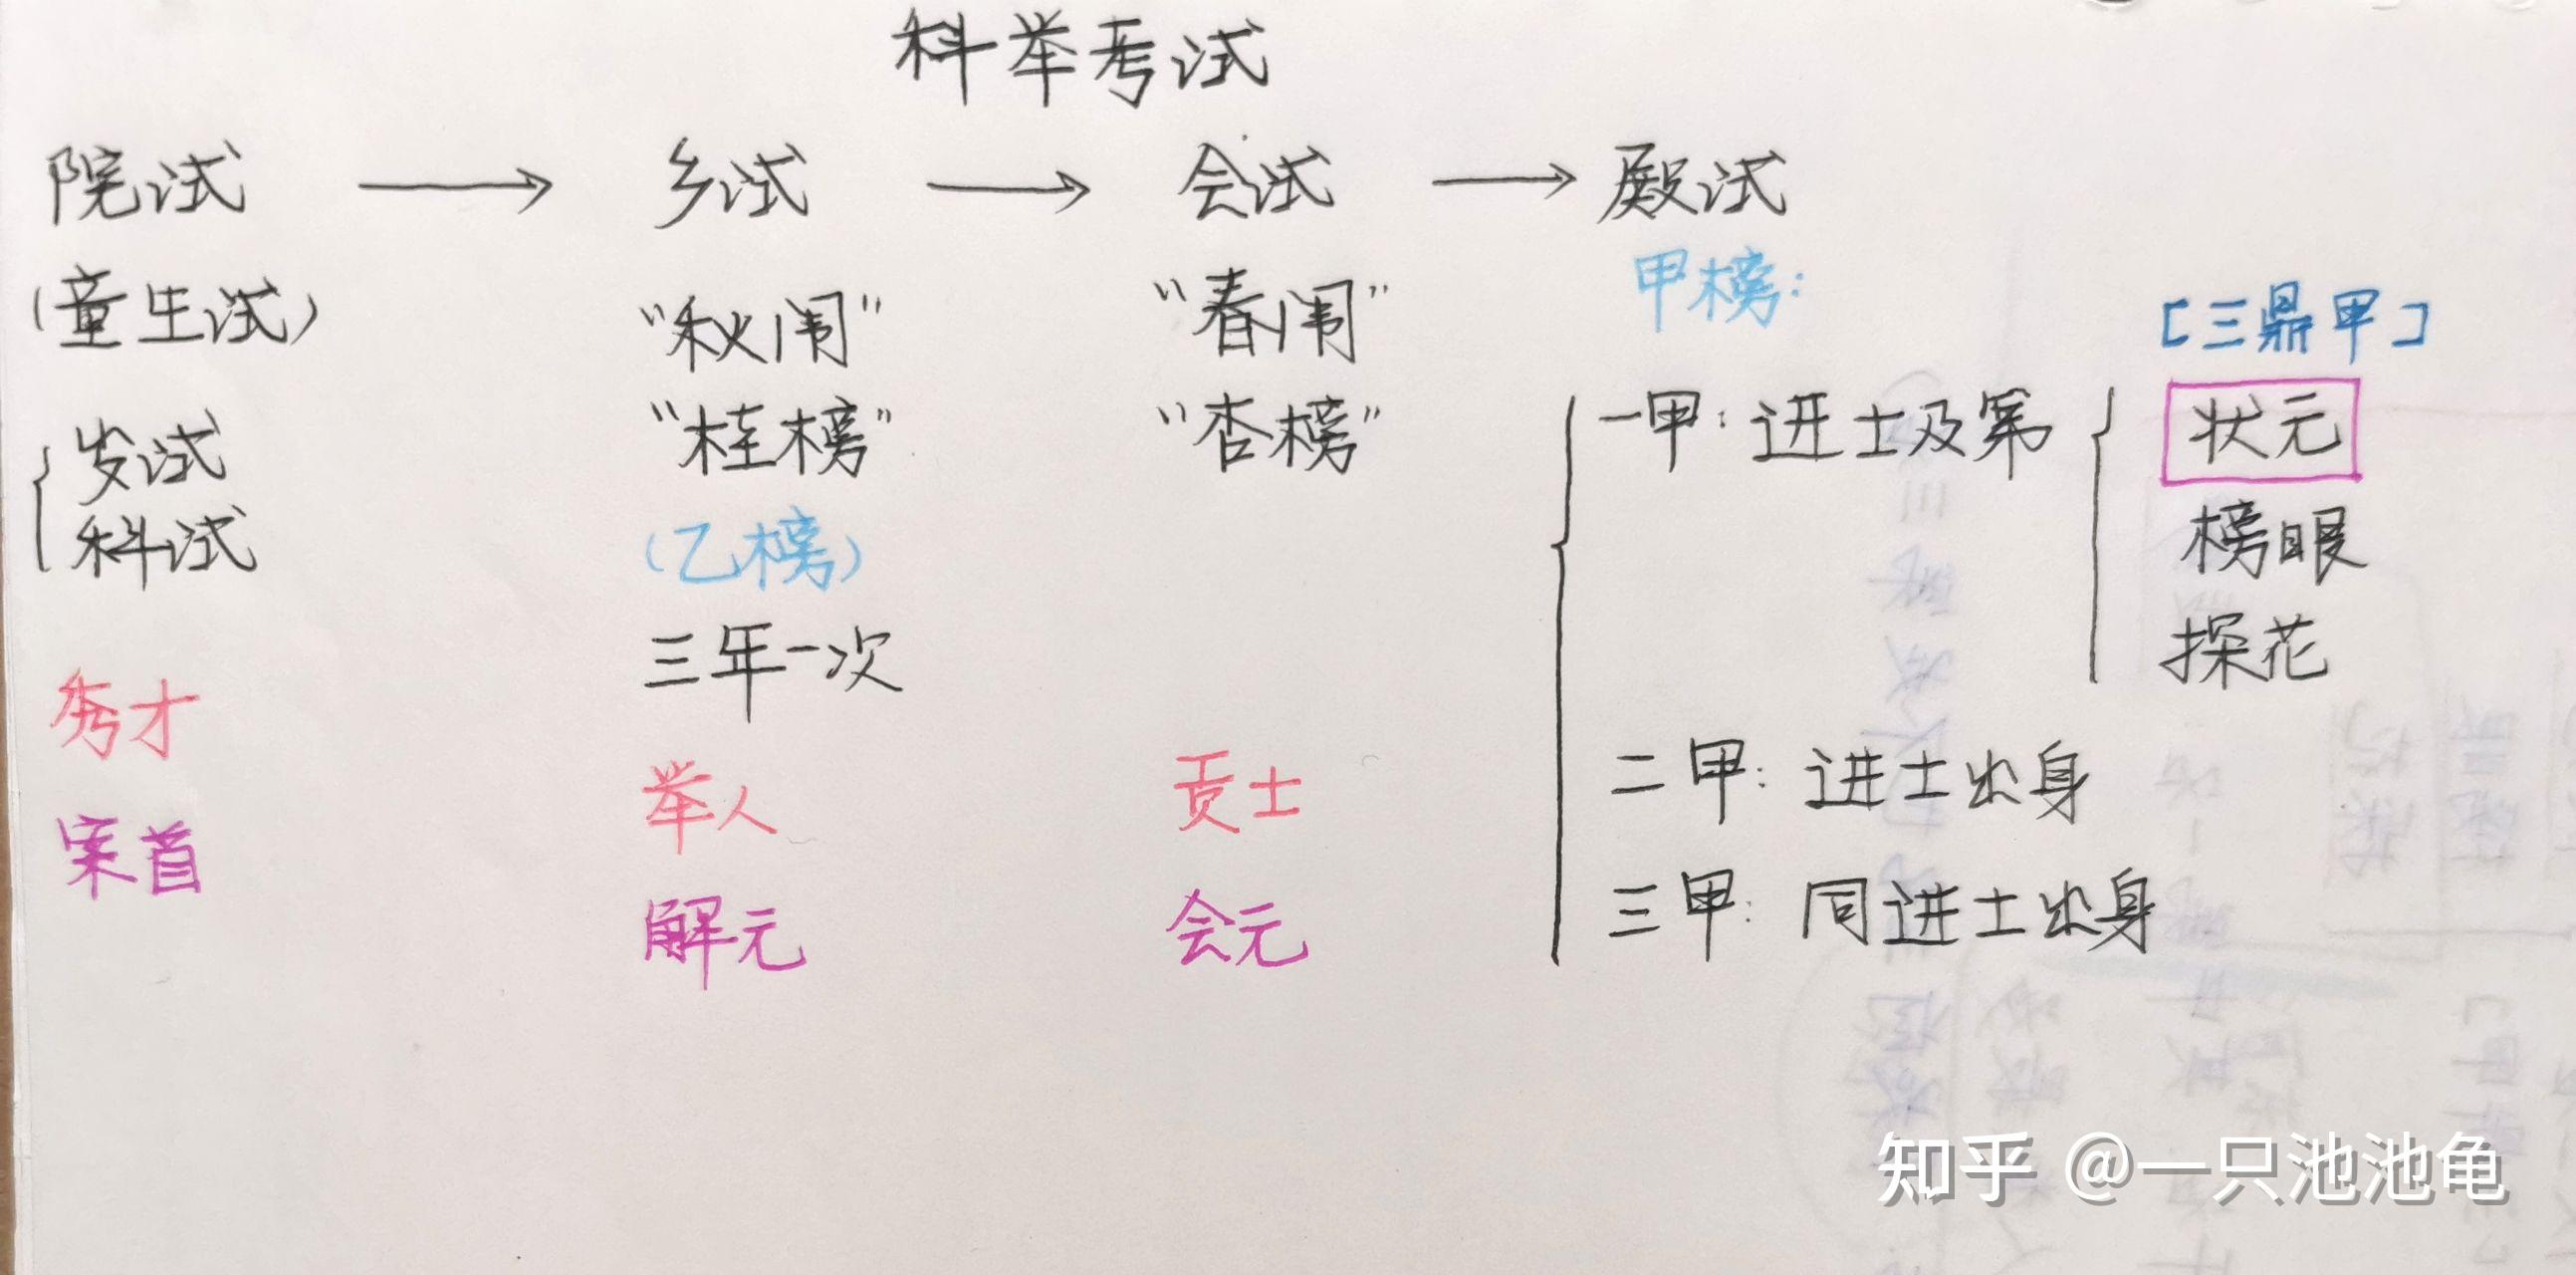 科举考试
院试 → 乡试 → 会试 → 殿试
(童生试)
{ 岁试
科试
秀才
案首
"秋闱"
"桂榜"
(乙榜)
三年一次
举人
解元
"春闱"
"杏榜"
贡士
会元
甲榜:
一甲: 进士及第
[三鼎甲]
状元
榜眼
探花
二甲: 进士出身
三甲: 同进士出身
知乎 @一只池池龟